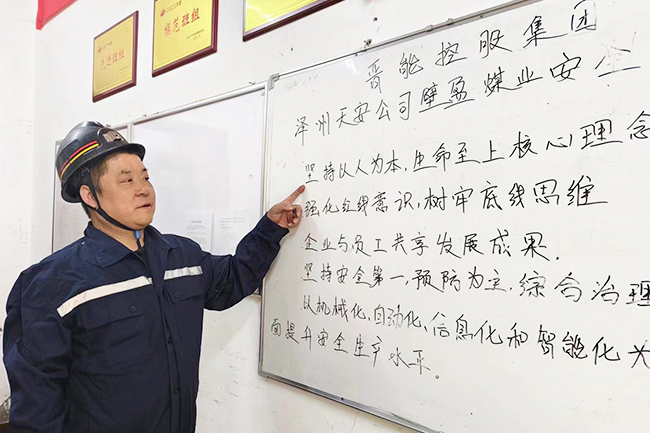 先进班组
模范班组
晋能控股集团
泽州天安公司壁盈煤业安全
坚持以人为本，生命至上核心理念
强化红线意识，树牢底线思维
企业与员工共享发展成果．
坚持安全第一，预防为主．综合治理
以机械化、自动化、信息化和智能化为
面提升安全生产水平。